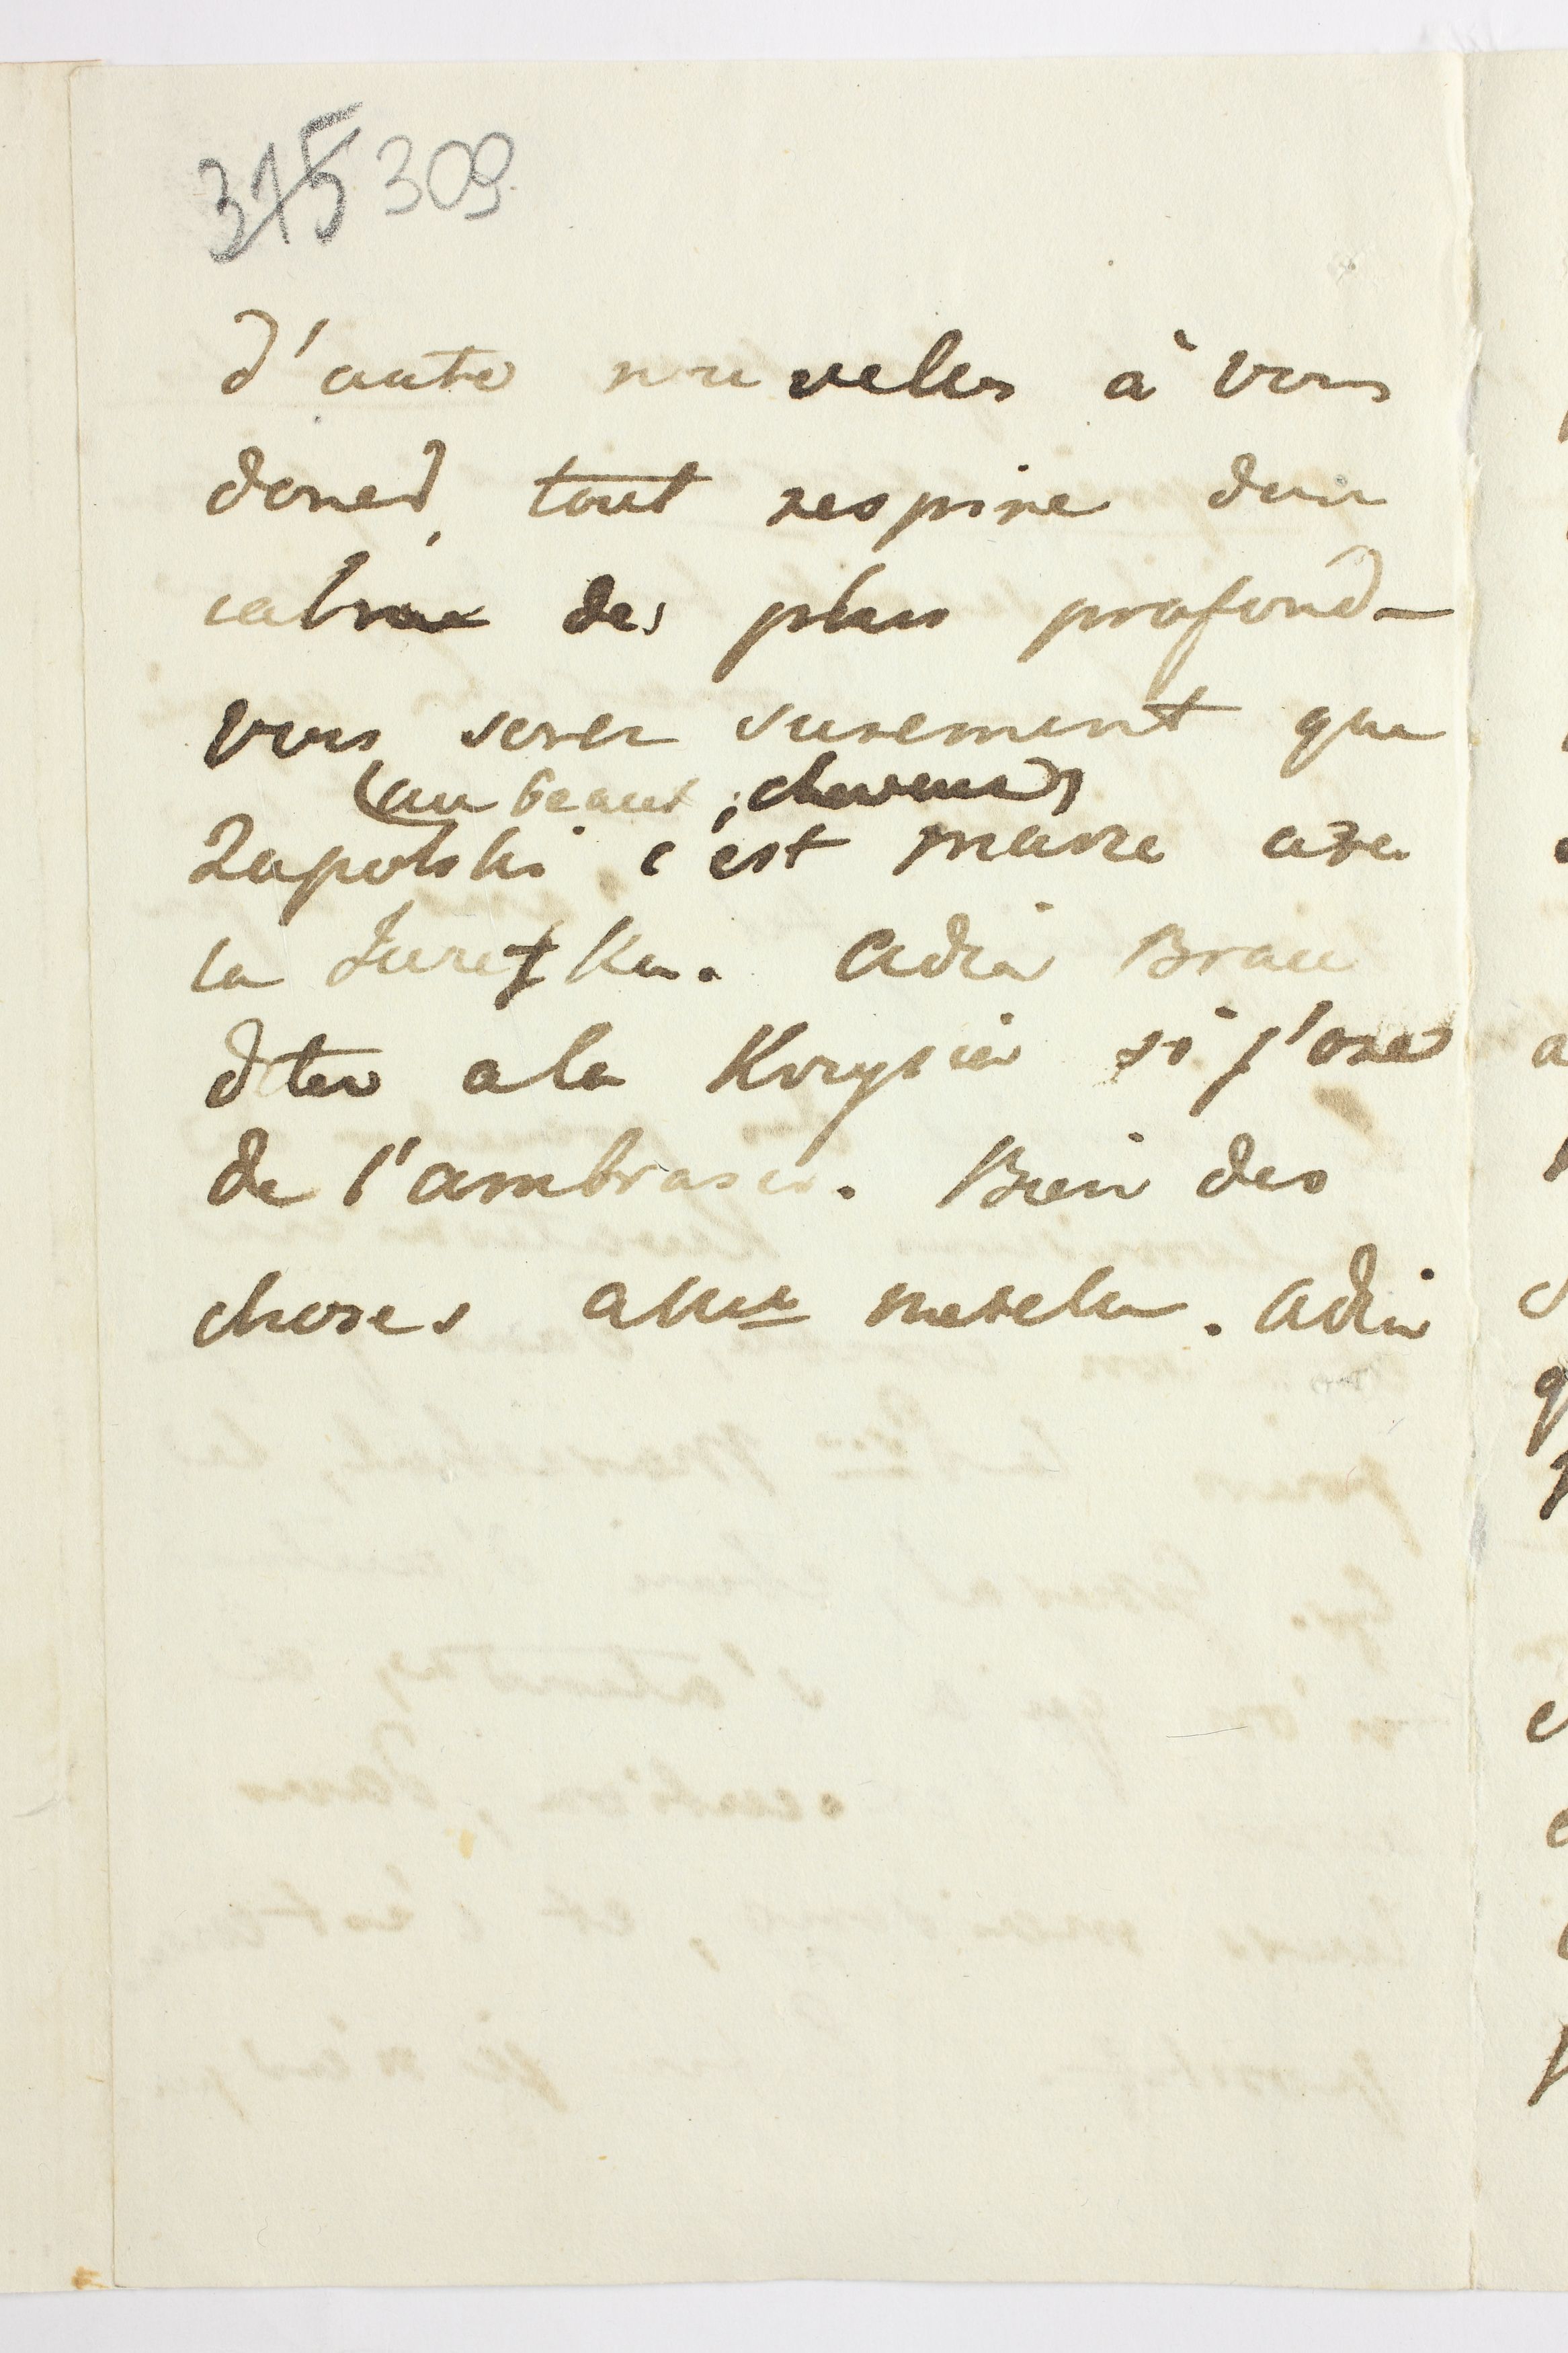 315 309
d'autre nouvelles à vous
doner, tout respire dun
calme des plus profond-
vous serer surement que
(au beaux cheveux)
Zapolski c'est marie ave
la Turetzka. Adieu Brau
dites a la Korysia si j'ose
de l'ambraser. Bien des
choses a Mme merelu. Adieu